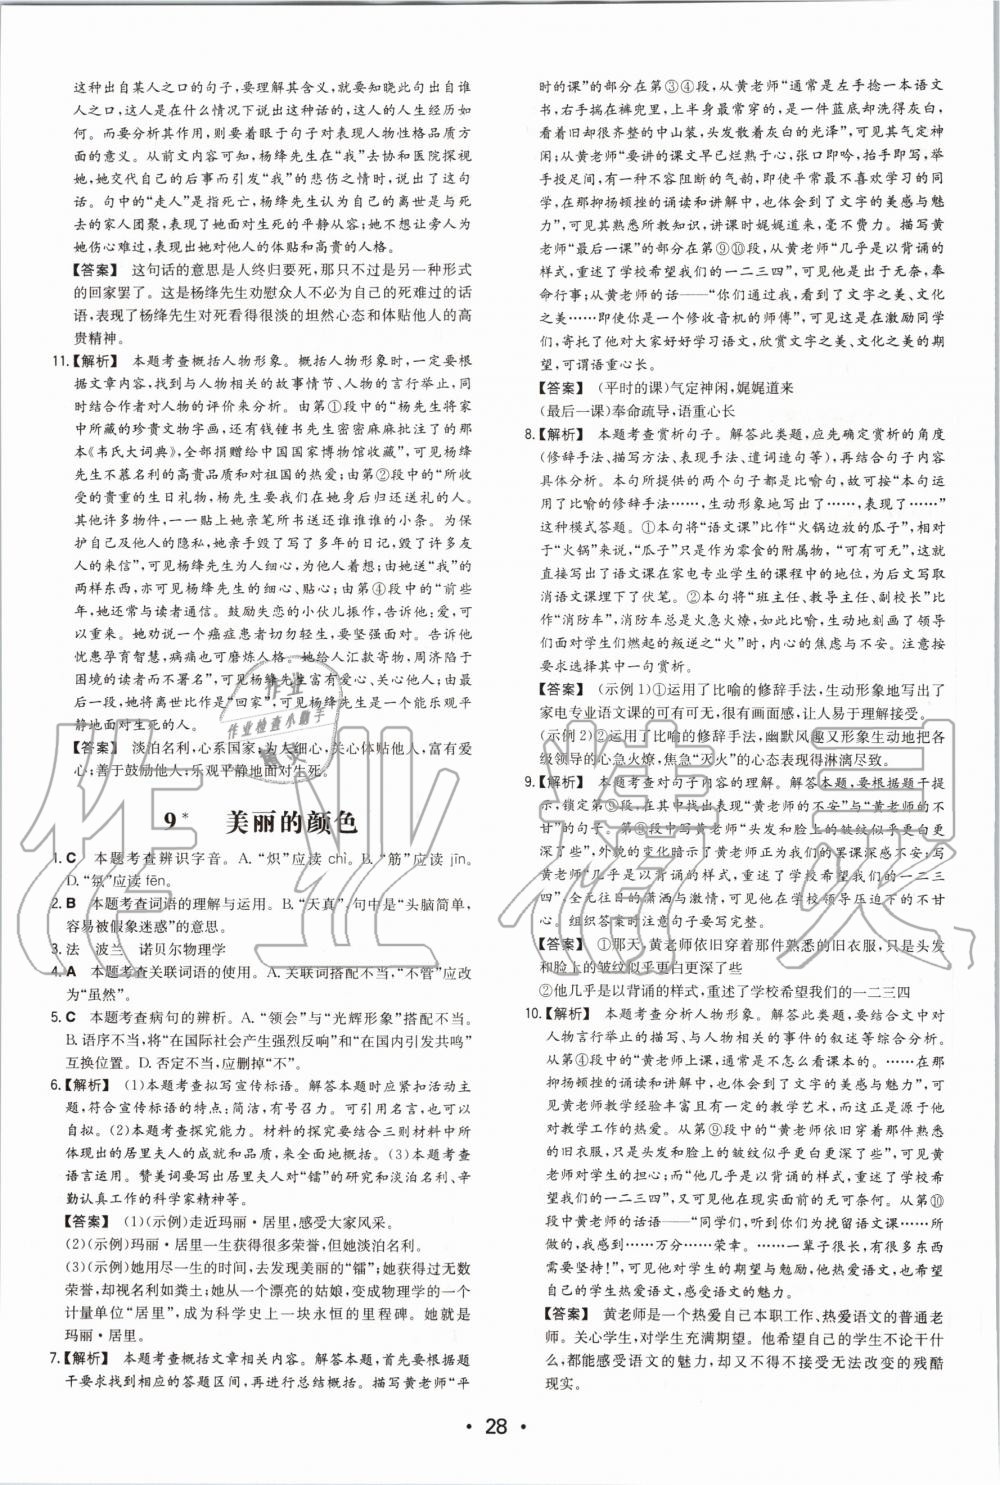 这种出自某人之口的句子,要理解其含义,就要知晓此句出自谁
人之口,这人是在什么情况下说出这种话的,这人的人生经历如
何。而要分析其作用,则要着眼于句子对表现人物性格品质方
面的意义。从前文内容可知,杨绛先生在“我”去协和医院探视
她,她交代自己的后事而引发“我”的悲伤之情时,说出了这句
话。句中的“走人”是指死亡,杨绛先生认为自己的离世是与死
去的家人团聚,表现了她面对生死的平静从容;她不想让旁人为
她伤心难过,表现出她对他人的体贴和高贵的人格。
【答案】 这句话的意思是人终归要死,那只不过是另一种形式
的回家罢了。这是杨绛先生劝慰众人不必为自己的死难过的话
语,表现了杨绛先生对死看得很淡的坦然心态和体贴他人的高
贵精神。
11.【解析】 本题考查概括人物形象。概括人物形象时,一定要
根据文章内容,找到与人物相关的故事情节、人物的言行举止,同
时结合作者对人物的评价来分析。由第①段中的“杨先生将家
中所藏的珍贵文物字画,还有钱锺书先生密密麻麻批注的那
本《韦氏大词典》,全部捐赠给中国国家博物馆收藏”,可见杨绛
先生不慕名利的高贵品质和对祖国的热爱;由第②段中的“所收
受的贵重的生日礼物,杨先生要我们在她身后归还送礼的人。
其他许多物件,一一贴上她亲笔所书送还谁谁谁的小条。为保
护自己及他人的隐私,她亲手毁了写了多年的日记,毁了许多友
人的来信”,可见杨绛先生的低调谦和、为他人着想;由她送“我”的
两样东西,亦可见杨绛先生的细心、贴心;由第④段中的“前些
年,她还常与读者通信。鼓励失恋的小伙儿振作,告诉他:爱,可
以重来。她劝说一个癌症患者切勿轻生,要坚强面对。告诉他
忧患孕育智慧,病痛也可磨炼人格。她给人汇款寄物,周济陷于
困境的读者而不署名”,可见杨绛先生富有爱心、善于鼓励他人;
杨绛先生将死亡比作是“回家”,可见杨绛先生是一个能乐观平
静地面对生死的人。
【答案】 淡泊名利,心系国家;为人细心,关心体贴他人,富有爱
心;善于鼓励他人;乐观平静地面对生死。
9* 美丽的颜色
1. C 本题考查辨识字音。A.“炽”应读 chì。B.“筋”应读 jīn。
D.“氛”应读fēn。
2. B 本题考查词语的理解与运用。B.“天真”,句中是“头脑简单,
容易被假象迷惑”的意思。
3. 法 波兰 诺贝尔物理学
4. A 本题考查关联词语的使用。A. 关联词搭配不当,“不管”应改
为“虽然”。
5. C 本题考查病句的辨析。A.“领会”与“光辉形象”搭配不当。
B. 语序不当,应将“在国际社会产生强烈反响”和“在国内引发共鸣”
互换位置。D. 否定不当,应删掉“不”。
6.【解析】 (1)本题考查拟写宣传标语。解答本题时应紧扣活动主
题,符合宣传标语的特点:简洁,有号召力。可引用名言,也可以
自拟。(2)本题考查探究能力。材料的探究要结合三则材料中所
体现出的居里夫人的成就和品质,来全面地概括。(3)本题考查
语言运用。赞美词要写出居里夫人对“镭”的研究和淡泊名利、辛
勤认真工作的科学家精神等。
【答案】 (1)(示例)走近玛丽·居里,感受大家风采。
(2)(示例)玛丽·居里一生获得很多荣誉,但她淡泊名利。
(3)(示例)她用尽一生的时间,去发现美丽的“镭”;她获得过无数
荣誉,却视名利如粪土;她从一个漂亮的姑娘,变成物理学的一个
计量单位“居里”,成为科学史上一块永恒的里程碑。她就是
玛丽·居里。
7.【解析】 本题考查概括文章相关内容。解答本题,首先要根据题
干要求找到相应的答题区间,再进行总结概括。描写黄老师“平
时的课”的部分在第③④段,从黄老师“通常是左手捻一本语文
书,右手揣在裤兜里,上半身最常穿的,是一件蓝底却洗得灰白,
看着却很齐整的中山装,头发散发着灰白的光泽”,可见其气定神
闲;从黄老师“要讲的课文早已烂熟于心,张口即吟,抬手即写,举
手投足间,有一种不容阻断的气韵,即使平常最不喜欢学习的同
学,在那抑扬顿挫的诵读和讲解中,也体会到了文字的美感与魅
力”,可见其熟悉所教知识,讲课时娓娓道来,风度优雅。描写黄
老师“最后一课”的部分在第⑨⑩段,从黄老师“几乎是以背诵的
样式,重述了学校希望我们的一二三四”,可见他是出于无奈,奉
命行事;从黄老师的话——“你们通过努力,看到了文字之美、文化
之美……即使你是一个修收音机的师傅”,可见这是在激励同学
们,寄托了他对大家好好学习语文,欣赏文字之美、文化之美的期
望,可谓语重心长。
【答案】 (平时的课)气定神闲,娓娓道来
(最后一课)奉命疏导,语重心长
8.【解析】 本题考查赏析句子。解答此类题,应先确定赏析的角度
(修辞手法、描写方法、表现手法、遣词造句等),再结合句子内容
具体分析。本句所提供的两个句子都是比喻句,故可按“本句运
用了比喻的修辞手法……,生动形象地写出了……,表现了……”
这种模式答题。①本句将“语文课”比作“火锅边放的瓜子”,相对
于“火锅”来说,“瓜子”只是作为零食的附属物,“可有可无”,这就
直接写出了语文课在家电专业学生的课程中的地位,为后文写取
消语文课埋下了伏笔。②本句将“班主任、教导主任、副校长”比
作“消防车”,消防车总是火急火燎,比喻生动地刻画了领导
们面对学生们燃起的叛逆之“火”时,内心的焦虑与不安。注意按
要求选择其中一句赏析。
【答案】 (示例1)①运用了比喻的修辞手法,生动形象地写出了
家电专业语文课的特点,很有画面感,让人易于理解接受。
(示例2)②运用了比喻的修辞手法,幽默风趣又形象生动地写出各
级领导的心急火燎,焦急“灭火”的心态体现得淋漓尽致。
9.【解析】 本题考查对句子内容的理解。解答本题,要根据题干提
示,锁定第⑨段,从中找出表现“黄老师的不安”与“黄老师的变
化”的句子。第⑨段中写黄老师“头发和脸上的皱纹似乎更白更
深了些”,外貌的变化暗示了黄老师对我们的罢课深感不安;写
黄老师“几乎是以背诵的样式,重述了学校希望我们的一二三
四”,一改往日的潇洒与激情,可见他在学校领导压迫下的不甘
心。组织答案时注意句子要写完整。
【答案】 ①那天,黄老师依旧穿着那件熟悉的旧衣服,只是头发
和脸上的皱纹似乎更白更深了些
②他几乎是以背诵的样式,重述了学校希望我们的一二三四
10.【解析】 本题考查分析人物形象。解答此类题,要结合文中对
人物言行举止的描写、与人物相关的事件的叙述等综合分析。
从第④段中的“黄老师上课,通常是不怎么看课本的。……在那
抑扬顿挫的诵读和讲解中,也体会到了文字的美感与魅力”,可
见黄老师教学经验丰富且有一定的教学艺术,而这正是源于他
对教学工作的热爱。从第⑨段中的“黄老师依旧穿着那件熟悉
的旧衣服,只是头发和脸上的皱纹似乎更白更深了些”,可见黄
老师对学生的担心;而“他几乎是以背诵的样式,重述了学校希
望我们的一二三四”,体现出他在现实面前的无可奈何。从第⑩
段中黄老师的话语——“同学们,听到你们为挽留语文课……所
感到……万分……荣幸。……一辈子很长,有很多东西
需要坚持!”,可见他对学生的期望与勉励,他热爱语文,也希望自
己的学生热爱语文,感受语文的魅力。
【答案】 黄老师是一个热爱自己本职工作、热爱语文的普通老
师。关心学生,对学生充满期望。他希望自己的学生不论干什
么,都能感受语文的魅力,却又不得不接受无法改变的残酷
现实。
· 28 ·
作业
作业检查小助手
作业精灵